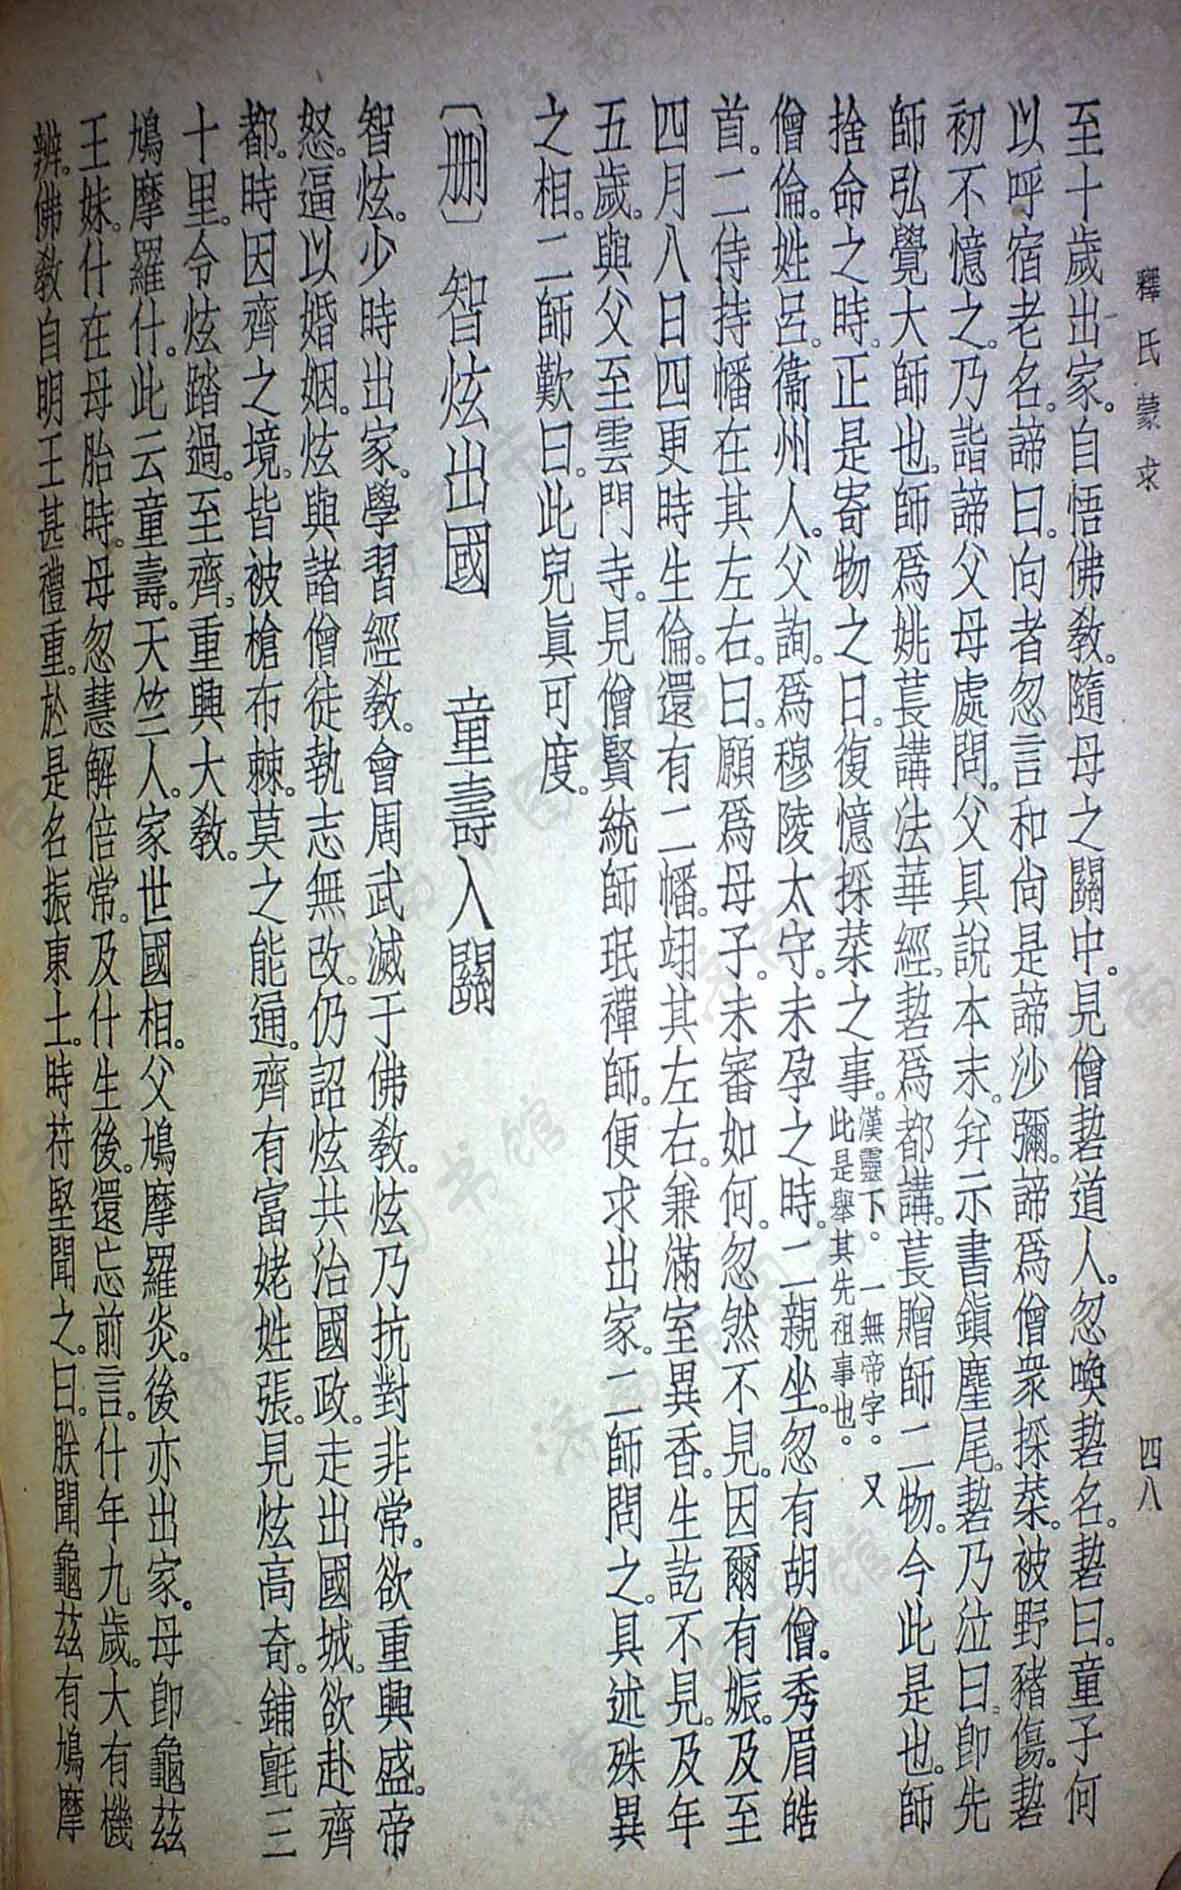 釋氏蒙求
四八
至十歲出家。自悟佛敎。隨母之關中。見僧䂮道人。忽喚䂮名。䂮曰。童子何
以呼宿老名。諦曰。向者忽言和尙是諦沙彌。諦爲僧衆採菜。被野豬傷。䂮
初不憶之。乃詣諦父母處問。父具說本末。幷示書鎭麈尾。䂮乃泣曰。卽先
師弘覺大師也。師爲姚萇講法華經。䂮爲都講。萇贈師二物。今此是也。師
捨命之時。正是寄物之日。復憶採菜之事。漢靈下。一無帝字。又
此是舉其先祖事也。
僧倫。姓呂。衞州人。父詢。爲穆陵太守。未孕之時。二親坐。忽有胡僧。秀眉皓
首。二侍持幡在其左右。曰。願爲母子。未審如何。忽然不見。因爾有娠。及至
四月八日四更時生倫。還有二幡。翊其左右。兼滿室異香。生訖不見。及年
五歲。與父至雲門寺。見僧賢統師珉禪師。便求出家。二師問之。具述殊異
之相。二師歎曰。此兒眞可度。
〔刪〕 智炫出國 童壽入關
智炫。少時出家。學習經敎。會周武滅于佛敎。炫乃抗對非常。欲重興盛。帝
怒。逼以婚姻。炫與諸僧徒執志無改。仍詔炫共治國政。走出國城。欲赴齊
都。時因齊之境。皆被槍布棘。莫之能通。齊有富姥姓張。見炫高奇。鋪氈三
十里。令炫踏過。至齊。重興大敎。
鳩摩羅什。此云童壽。天竺人。家世國相。父鳩摩羅炎。後亦出家。母卽龜茲
王妹。什在母胎時。母忽慧解倍常。及什生後。還忘前言。什年九歲。大有機
辨。佛敎自明。王甚禮重。於是名振東土。時苻堅聞之。曰。朕聞龜茲有鳩摩